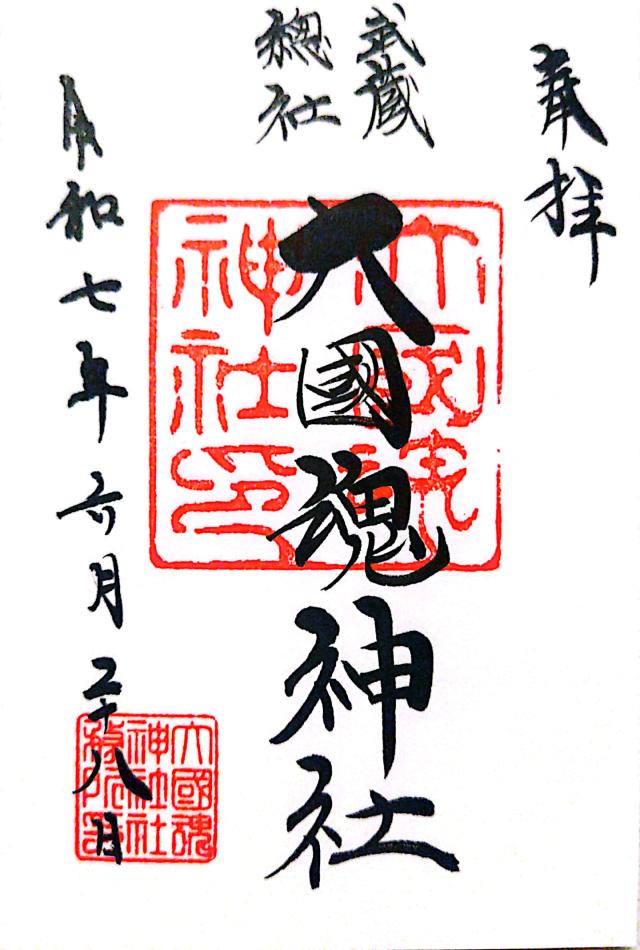 奉拝
武蔵
總社
大國魂神社
令和七年六月二十八日
大國魂
神社印
大國魂
神社社
務所印